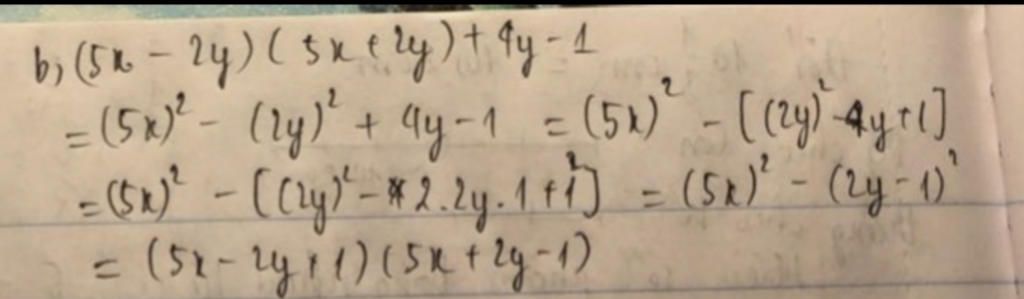 b, (5x - 2y)(5x + 2y) + 4y - 1
= (5x)² - (2y)² + 4y - 1 = (5x)² - [(2y)² - 4y + 1]
= (5x)² - [(2y)² - 2.2y.1 + 1²] = (5x)² - (2y - 1)²
= (5x - 2y + 1)(5x + 2y - 1)